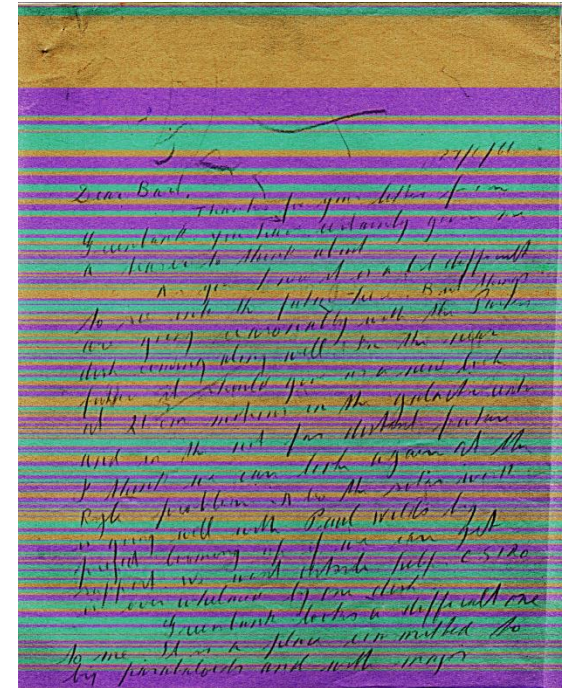 27/6/61.
Dear Bart,
Thanks for your letter from
Greenbank you have certainly given me
a teaser to think about.
As you know it is a bit difficult
to see into the future here. But things
are going reasonably with the Parkes
dish coming along well. In the near
future it should give us a new look
at 21 cm motions in the galactic centre
and in the not far distant future
I think we can look again at the
Ryle problem. Also the solar work
is going well with Paul Wild's big
project coming up if we can get
support we need outside help. CSIRO
is over balanced by one dish.
Greenbank looks a difficult one
to me. It is a place committed to
by paraboloids and with major